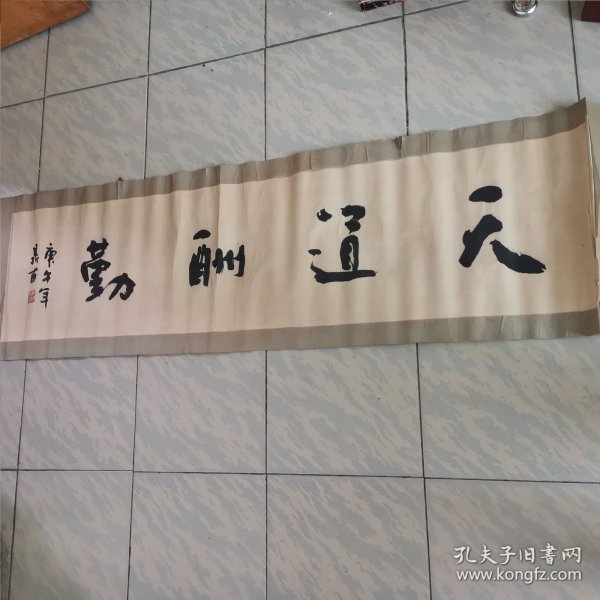 天道酬勤
庚午年
孔夫子旧書网
www.kongfz.com